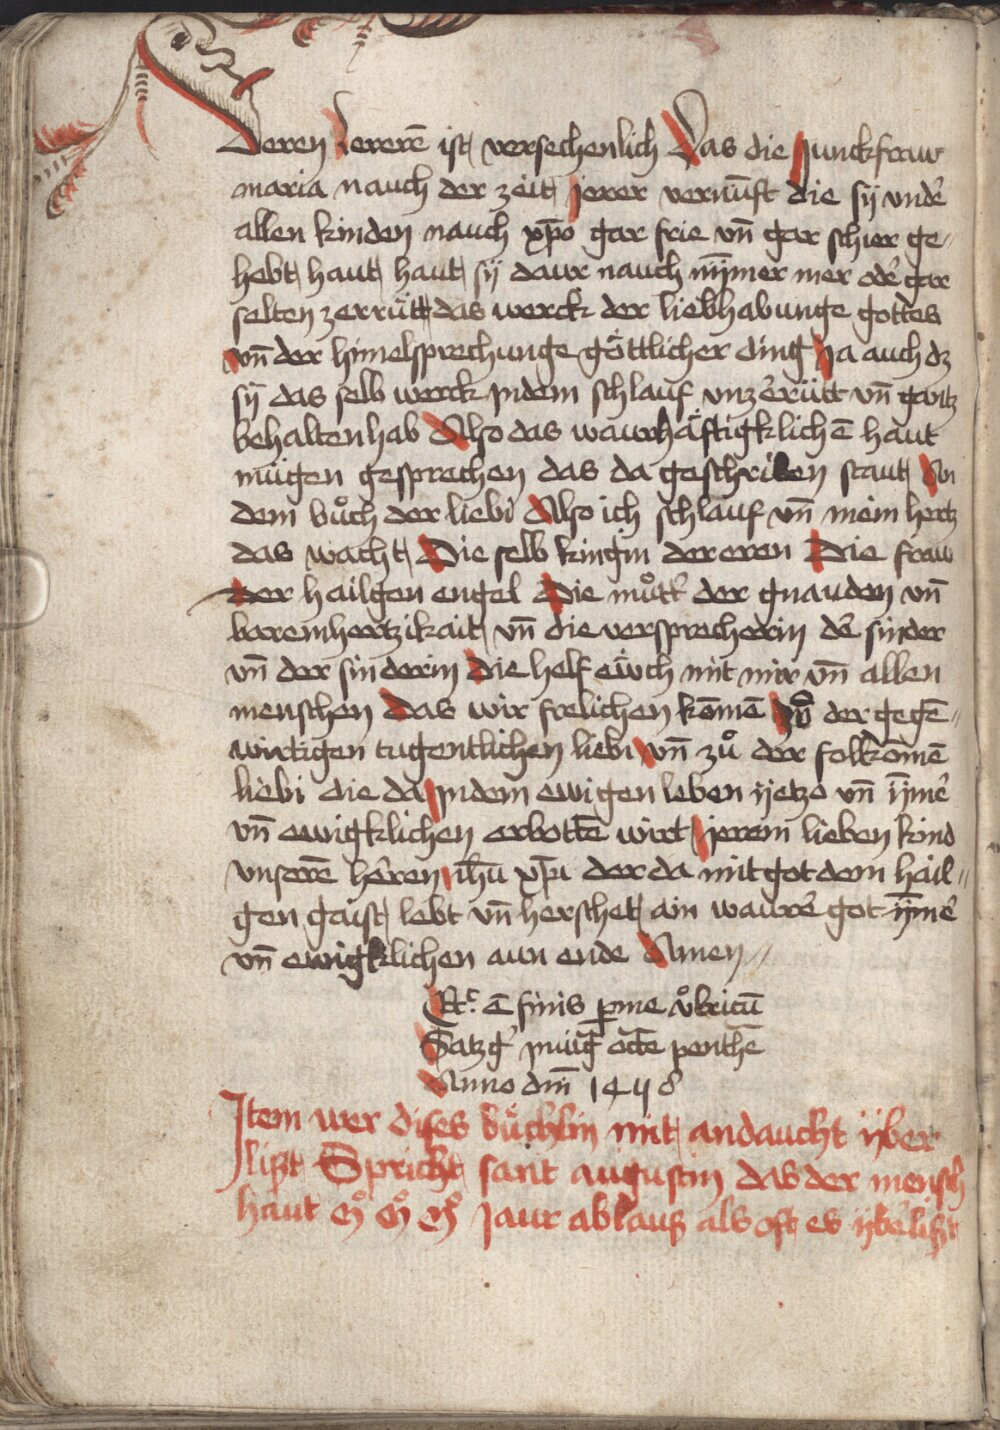 Deren dererē ist versechenlich Das die Junckfraw
maria nauch der zeit jerer vernūft die sÿ vnde͛
allen kinden nauch xp̄o gar frie vn̄ gar schier ge⸗
hebt haut haut sÿ daur nauch nÿmer mer ode͛ gar
selten zerrütt das werck der liebhabunge gottes
vn̄ der himelsprechunge göttlicher ding Ja auch dz
sÿ das selb werck jndem schlauf vnze͛rütt vn̄ gantz
behalten hab Also das waurhäftigklichē haut
mügen gesprechen das da geschriben staut An
dem bůch der liebi Also ich schlauf vn̄ mein hertz
das wacht Die selb kingin der eren Die fraw
der hailgen engel Die můtt͛ der gnauden vn̄
baremhertzikait vn̄ die versprecherin de͛ sinder
vn̄ der sinderin Die helf eẅch mit mir vn̄ allen
menschen Das wir frelichen kōmē der gegē⸗
wirtigen tugentlichen liebi vn̄ zů der folkomē
liebi die da jndem ewigen leben ÿetzo vn̄ ÿme͛
vn̄ ewigklichen erbottē wirt jerem lieben kind
vnserē he͛ren ih̄u xp̄i der da mit got dem hail⸗
gen gaist lebt vn̄ herschet ain waure͛ got ÿme͛
vn̄ ewigklichen aun ende Amen
finis ꝑ me vͦlricū
Anno dm̄
Item wer dises büchlin mit andaucht ÿber
lißt Spricht sant augustin das der mensch
haut jaur ablauß als oft es ÿbe͛lißt